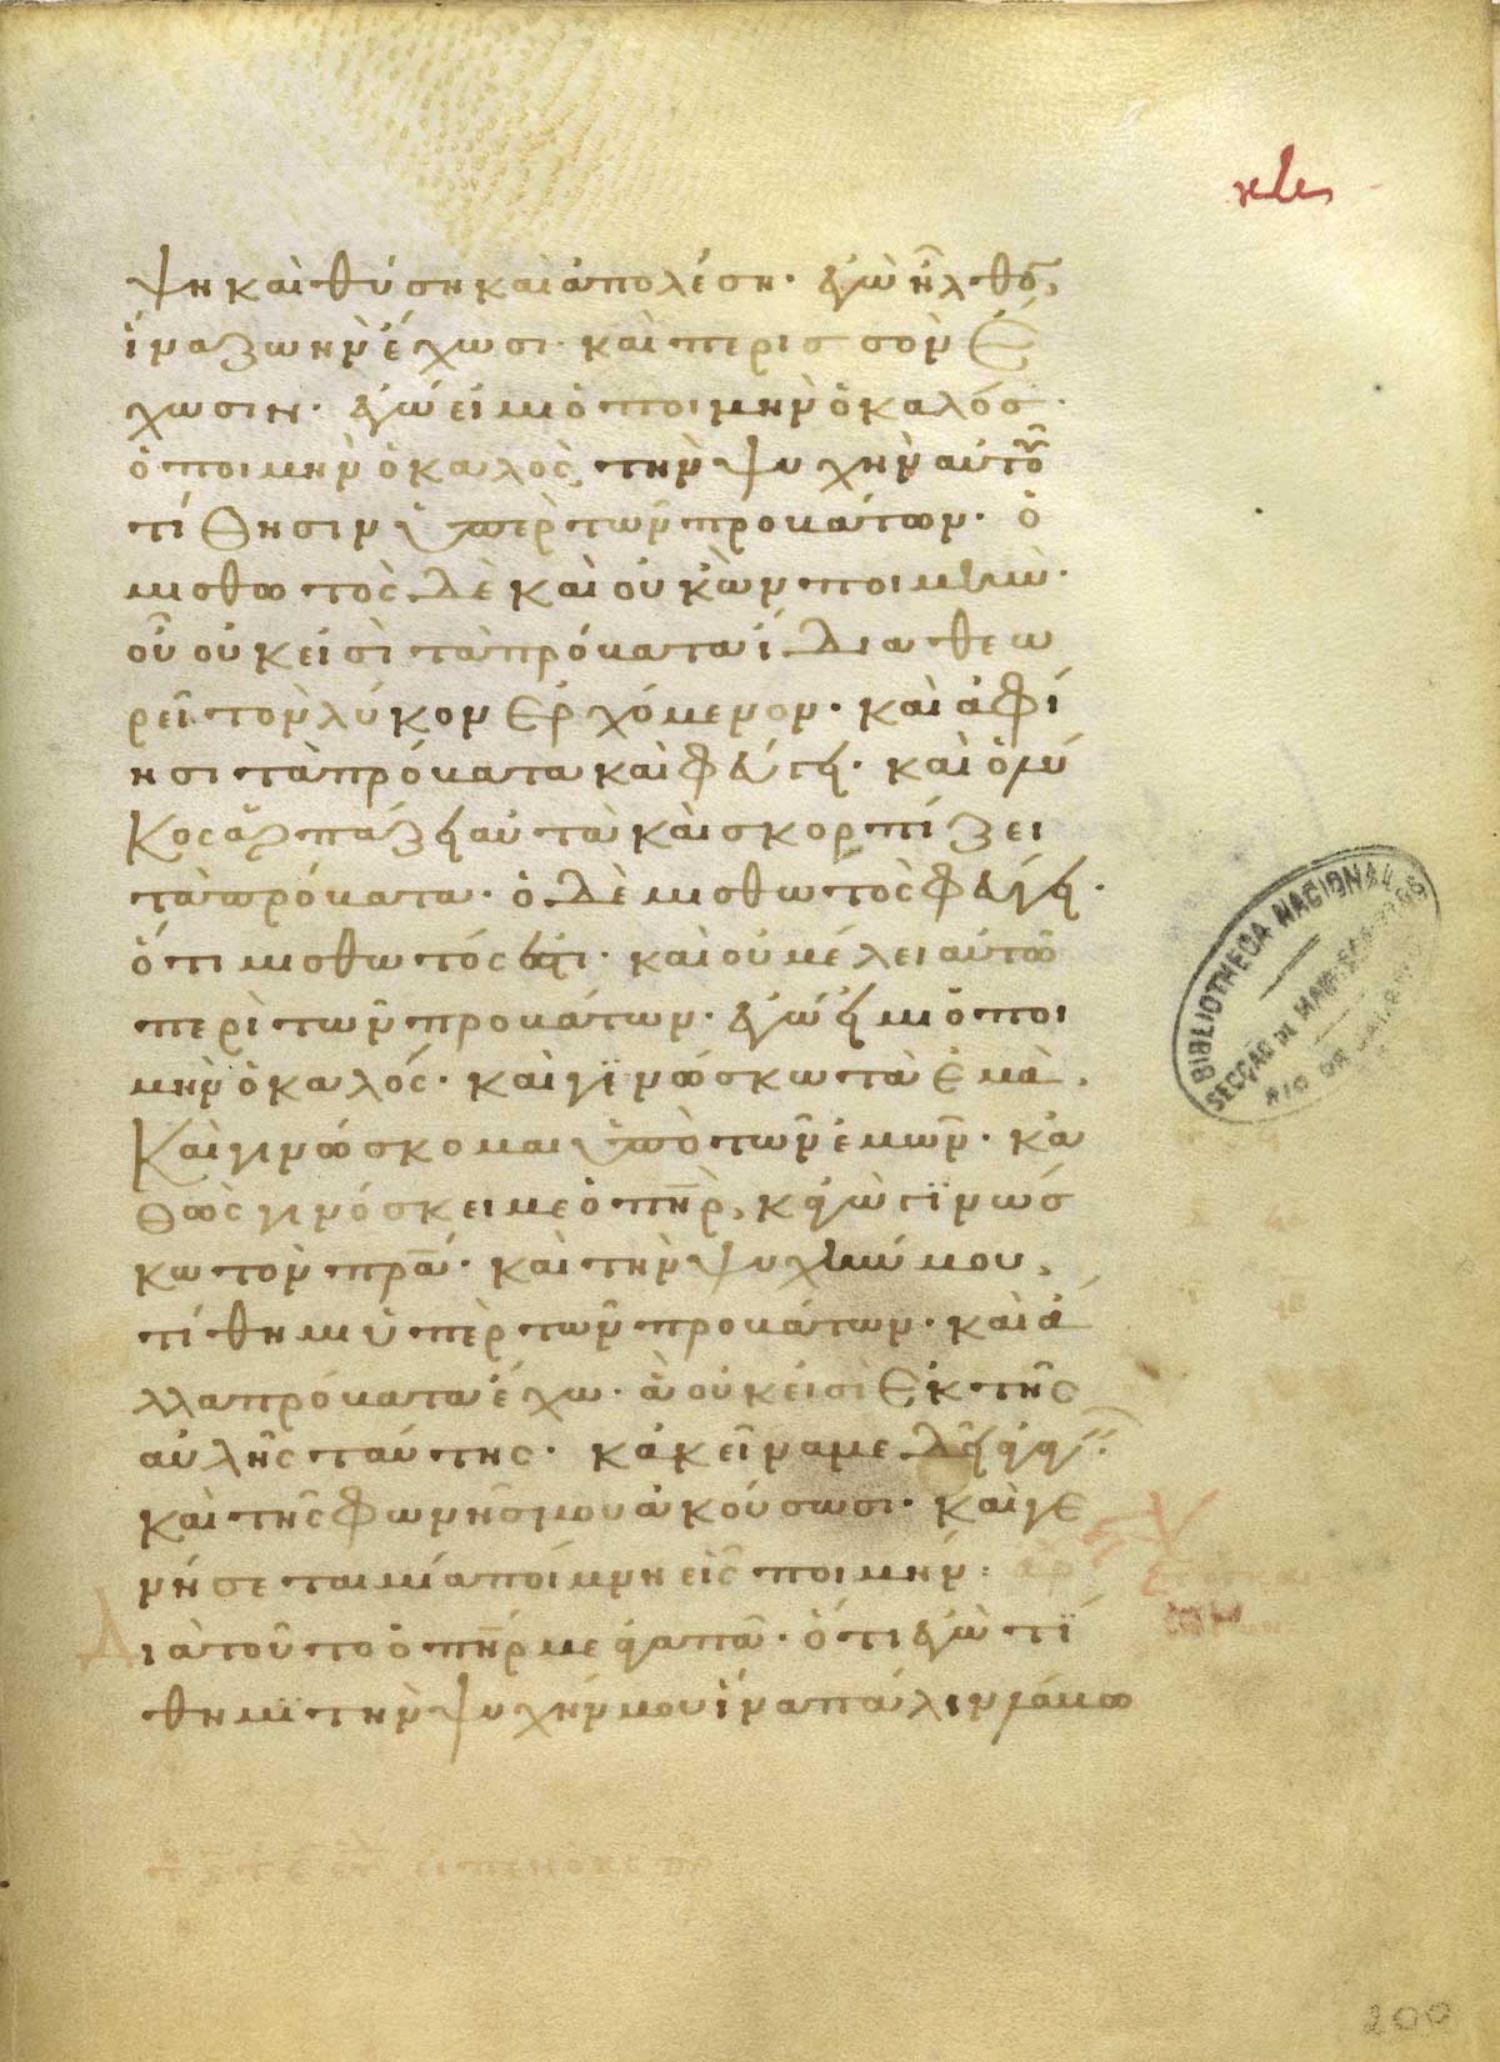 ψη καὶ θύση καὶ ἀπολέση· ἐγὼ ἦλθον,
ἵνα ζωὴν ἔχωσι· καὶ περισσὸν ἔ
χωσιν· ἐγώ εἰμι ὁ ποιμὴν ὁ καλός·
ὁ ποιμὴν ὁ καλὸς, τὴν ψυχὴν αὐτοῦ
τίθησιν ὑπὲρ τῶν προβάτων· ὁ
μισθωτὸς δὲ καὶ οὐκ ὢν ποιμὴν·
οὗ οὐκ εἰσὶ τὰ πρόβατα ἴδια θεω
ρεῖ τὸν λύκον ἐρχόμενον· καὶ ἀφί
ησι τὰ πρόβατα καὶ φεύγει· καὶ ὁ λύ
κος ἁρπάζει αὐτὰ καὶ σκορπίζει
τὰ πρόβατα· ὁ δὲ μισθωτὸς φεύγει·
ὅτι μισθωτός ἐστι· καὶ οὐ μέλει αὐτῶ
περὶ τῶν προβάτων· ἐγώ εἰμι ὁ ποι
μὴν ὁ καλός· καὶ γινώσκω τὰ ἐμὰ,
καὶ γινώσκομαι ὑπὸ τῶν ἐμῶν· κα
θὼς γινόσκει με ὁ πηρ, καγὼ γϊνώσ
κω τὸν πρα· καὶ τὴν ψυχήν μου,
τίθημι ὑπὲρ τῶν προβάτων· καὶ ἄ
λλα πρόβατα ἔχω· ἃ οὐκ εἰσὶ ἐκ τῆς
αὐλῆς ταύτης· κἀκεῖνα με δεῖ ἀγαγεῖν·
καὶ τῆς φωνῆς μου ἀκούσωσι· καὶ γε
νήσεται μία ποίμνη εἷς ποιμήν:
Διὰ τοῦτο ὁ πηρ με ἀγαπᾶ· ὅτι ἐγὼ τί
θημϊ τὴν ψυχήν μου ἵνα πάλιν λάβω
BIBLIOTHECA NACIONAL
SECÇÃO DE MANUSCRIPTOS
RIO DE JANEIRO
200